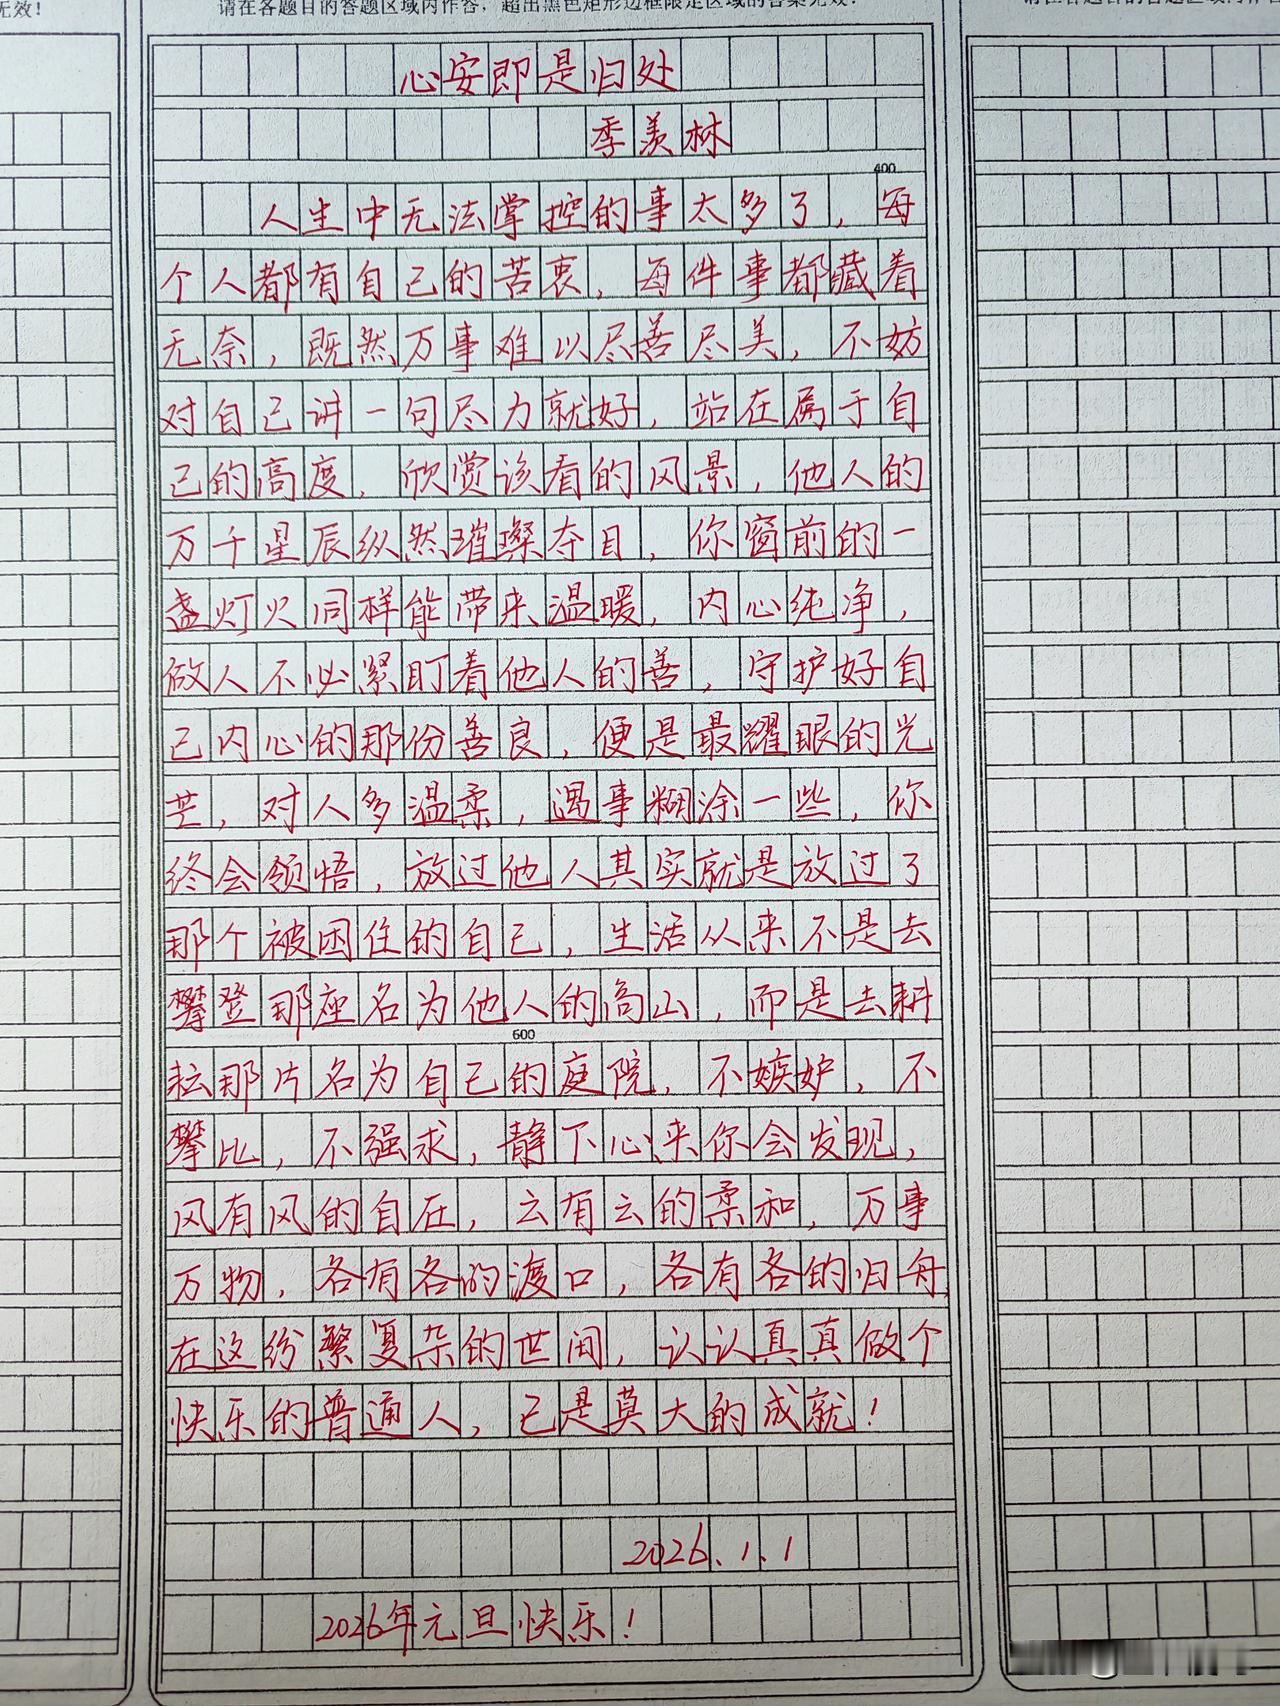 无效！
请在各题目的答题区域内作答，超出黑色矩形边框限定区域的答案无效！
请在各题目的答题区域内作答
心安即是归处
季羡林
400
人生中无法掌控的事太多了，每
个人都有自己的苦衷，每件事都藏着
无奈，既然万事难以尽善尽美，不妨
对自己讲一句尽力就好，站在属于自
己的高度，欣赏该看的风景，他人的
万千星辰纵然璀璨夺目，你窗前的一
盏灯火同样能带来温暖，内心纯净，
做人不必紧盯着他人的善，守护好自
己内心的那份善良，便是最耀眼的光
芒，对人多温柔，遇事糊涂一些，你
终会领悟，放过他人其实就是放过了
那个被困住的自己，生活从来不是去
攀登那座名为他人的高山，而是去耕
600
耘那片名为自己的庭院，不嫉妒，不
攀比，不强求，静下心来你会发现，
风有风的自在，云有云的柔和，万事
万物，各有各的渡口，各有各的归舟，
在这纷繁复杂的世间，认认真真做个
快乐的普通人，已是莫大的成就！
2026.1.1
2026年元旦快乐！